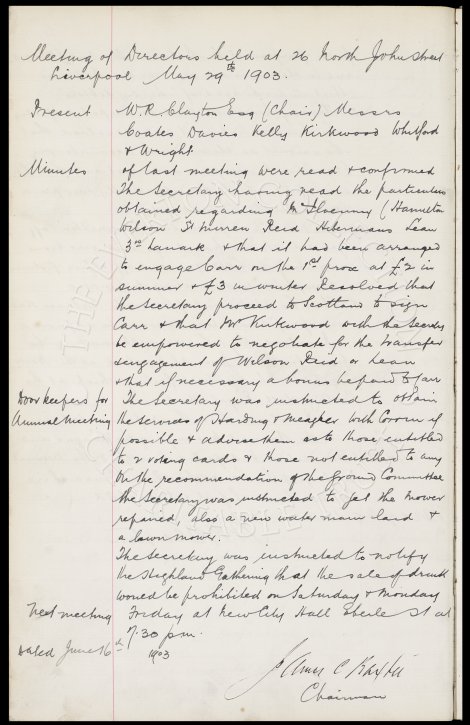 Meeting of Directors held at 26 North John Street
Liverpool May 29th 1903.
Present W. R. Clayton Esq (Chair) Messrs
Coates Davies Kelly Kirkwood Whitford
& Wright
Minutes of last meeting were read & confirmed
The Secretary having read the particulars
obtained regarding McIlvenny (Hamilton
Wilson St Mirren Reid Hibernians Lean
3rd Lanark & that it had been arranged
to engage Carr on the 1st prox at £2 in
summer & £3 in winter Resolved that
the Secretary proceed to Scotland to sign
Carr & that Mr Kirkwood with the Secretary
be empowered to negotiate for the transfer
& engagement of Wilson Reid or Lean
& that if necessary a bonus be paid to Carr
Doorkeepers for The Secretary was instructed to obtain
Annual Meeting the services of Harding & Meagher with Coom if
possible & advise them as to those entitled
to 2 voting cards & those not entitled to any
On the recommendation of the Ground Committee
the Secretary was instructed to get the mower
repaired, also a new water main laid &
a lawn mower.
The Secretary was instructed to notify
the Highland Gathering that the sale of drink
would be prohibited on Saturday & Monday
Next meeting Friday at New City Hall Eberle St at
7.30 pm.
Dated June 16th 1903
James C Baxter
Chairman